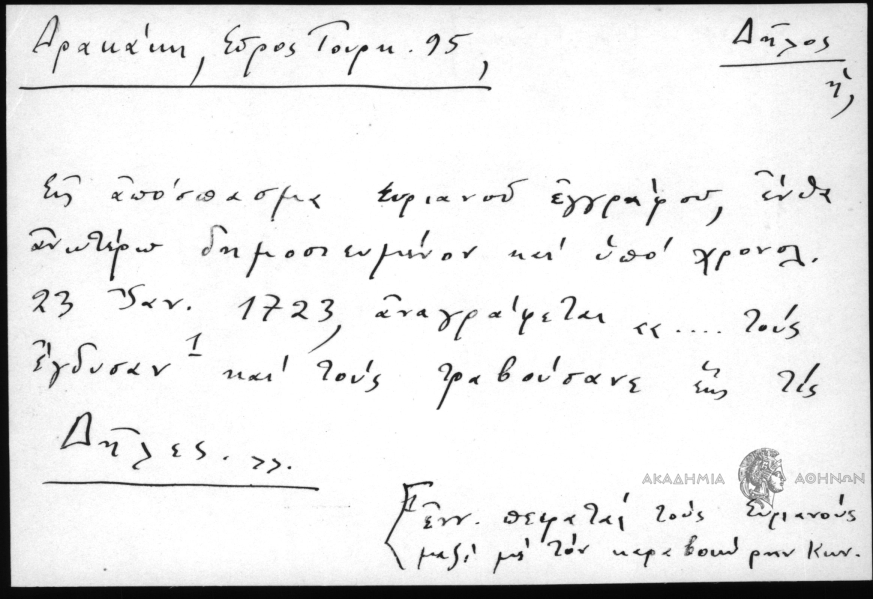 Δρακάκη, Σύρος Τουρκ. 95,
Δῆλος
ἡ,
Εἰς ἀπόσπασμα Συριανοῦ ἐγγράφου, ἔνθα
ἀνωτέρω δημοσιευμένον καί ὑπό χρονολ.
23 Ἰαν. 1723, ἀναγράφεται «.... τούς
ἔγδυσαν 1 καί τούς τραβούσανε εἰς τίς
Δῆλες.».
ΑΚΑΔΗΜΙΑ ΑΘΗΝΩΝ
1 ἐνν. πειραταί τούς Συριανούς
μαζί μέ τόν καραβοκύρην Κων.